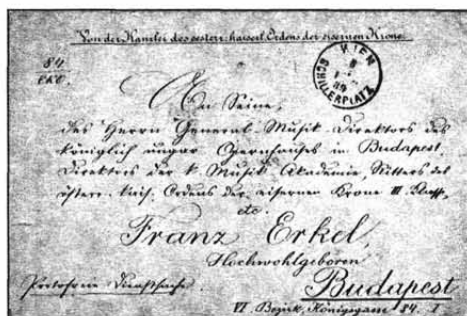 Von der Kanzlei des oesterr: kaiserl: Ordens der eisernen Krone.
84
EKO.
WIEN
SCHILLERPLATZ
An Seine,
des Herrn General-Musik-Direktors des
königlich ungar Opernhauses in Budapest
Direktors der k. Musik Akademie, Ritters des
österr. kais. Ordens der eisernen Krone III. Klasse,
etc.
Franz Erkel,
Hochwohlgeboren
Portofreie Dienstsache.
Budapest
VI. Bezirk, Königsgasse 84. I